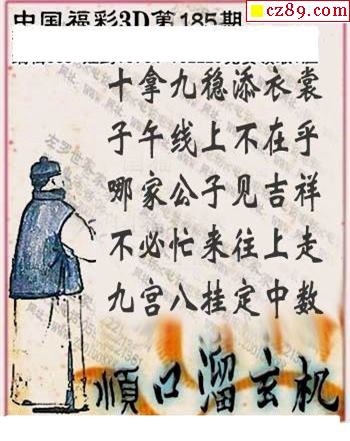 cz89.com
中国福彩3D第185期
十拿九稳添衣裳
子午线上不在乎
哪家公子见吉祥
不必忙来往上走
九宫八挂定中数
顺口溜玄机